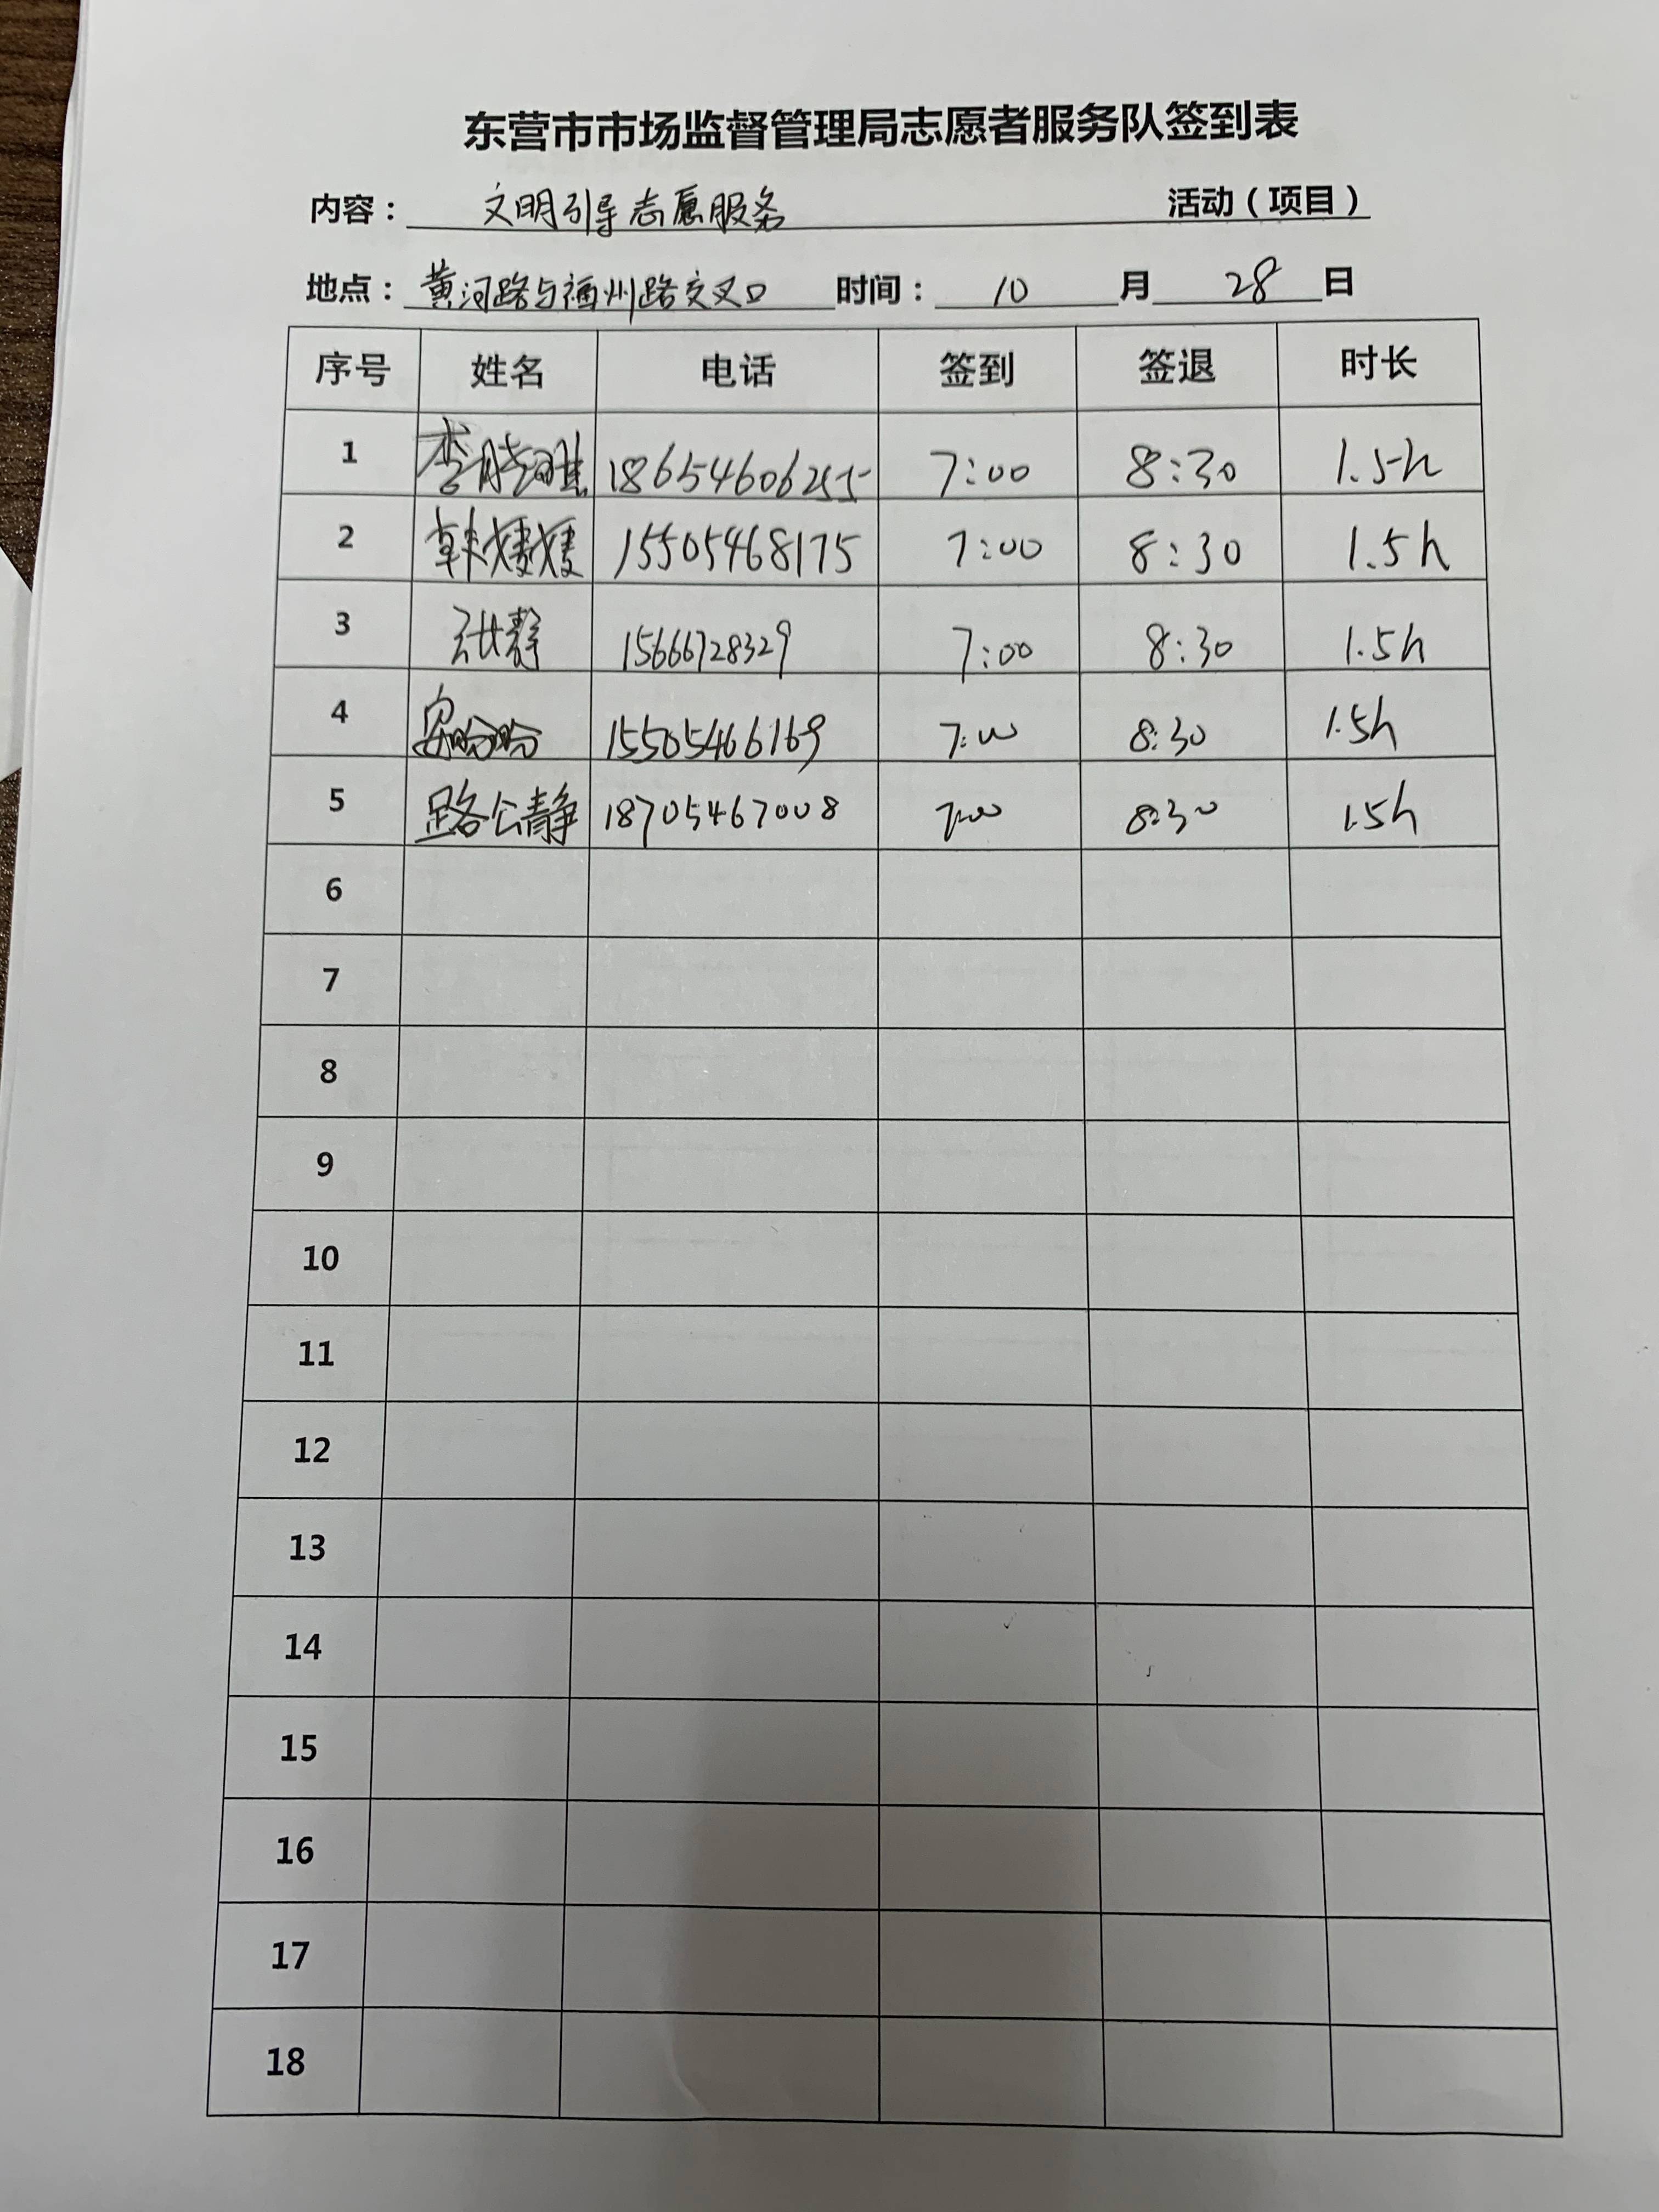 东营市市场监督管理局志愿者服务队签到表
内容： 文明引导志愿服务 活动（项目）
地点： 黄河路与福州路交叉口 时间： 10 月 28 日
序号 姓名 电话 签到 签退 时长
1 李 18654606255 7:00 8:30 1.5h
2 韩媛媛 15505468175 7:00 8:30 1.5h
3 张静 15666728329 7:00 8:30 1.5h
4 15505466169 7:00 8:30 1.5h
5 路公静 18705467008 7:00 8:30 1.5h
6
7
8
9
10
11
12
13
14
15
16
17
18